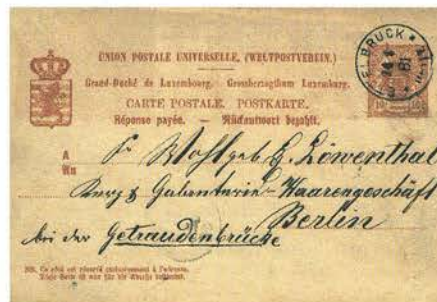 UNION POSTALE UNIVERSELLE. (WELTPOSTVEREIN.)
Grand-Duché de Luxembourg. - Grossherzogthum Luxemburg.
CARTE POSTALE. POSTKARTE.
Réponse payée. — Rückantwort bezahlt.
ETTELBRUCK
81
10
A
An
Wohlgeb. L. Löwenthal
Kurz & Galanterie-Waarengeschäft
Berlin
bei der Getraudenbrücke
NB. Ce côté est réservé exclusivement à l'adresse.
Diese Seite ist nur für die Adresse bestimmt.